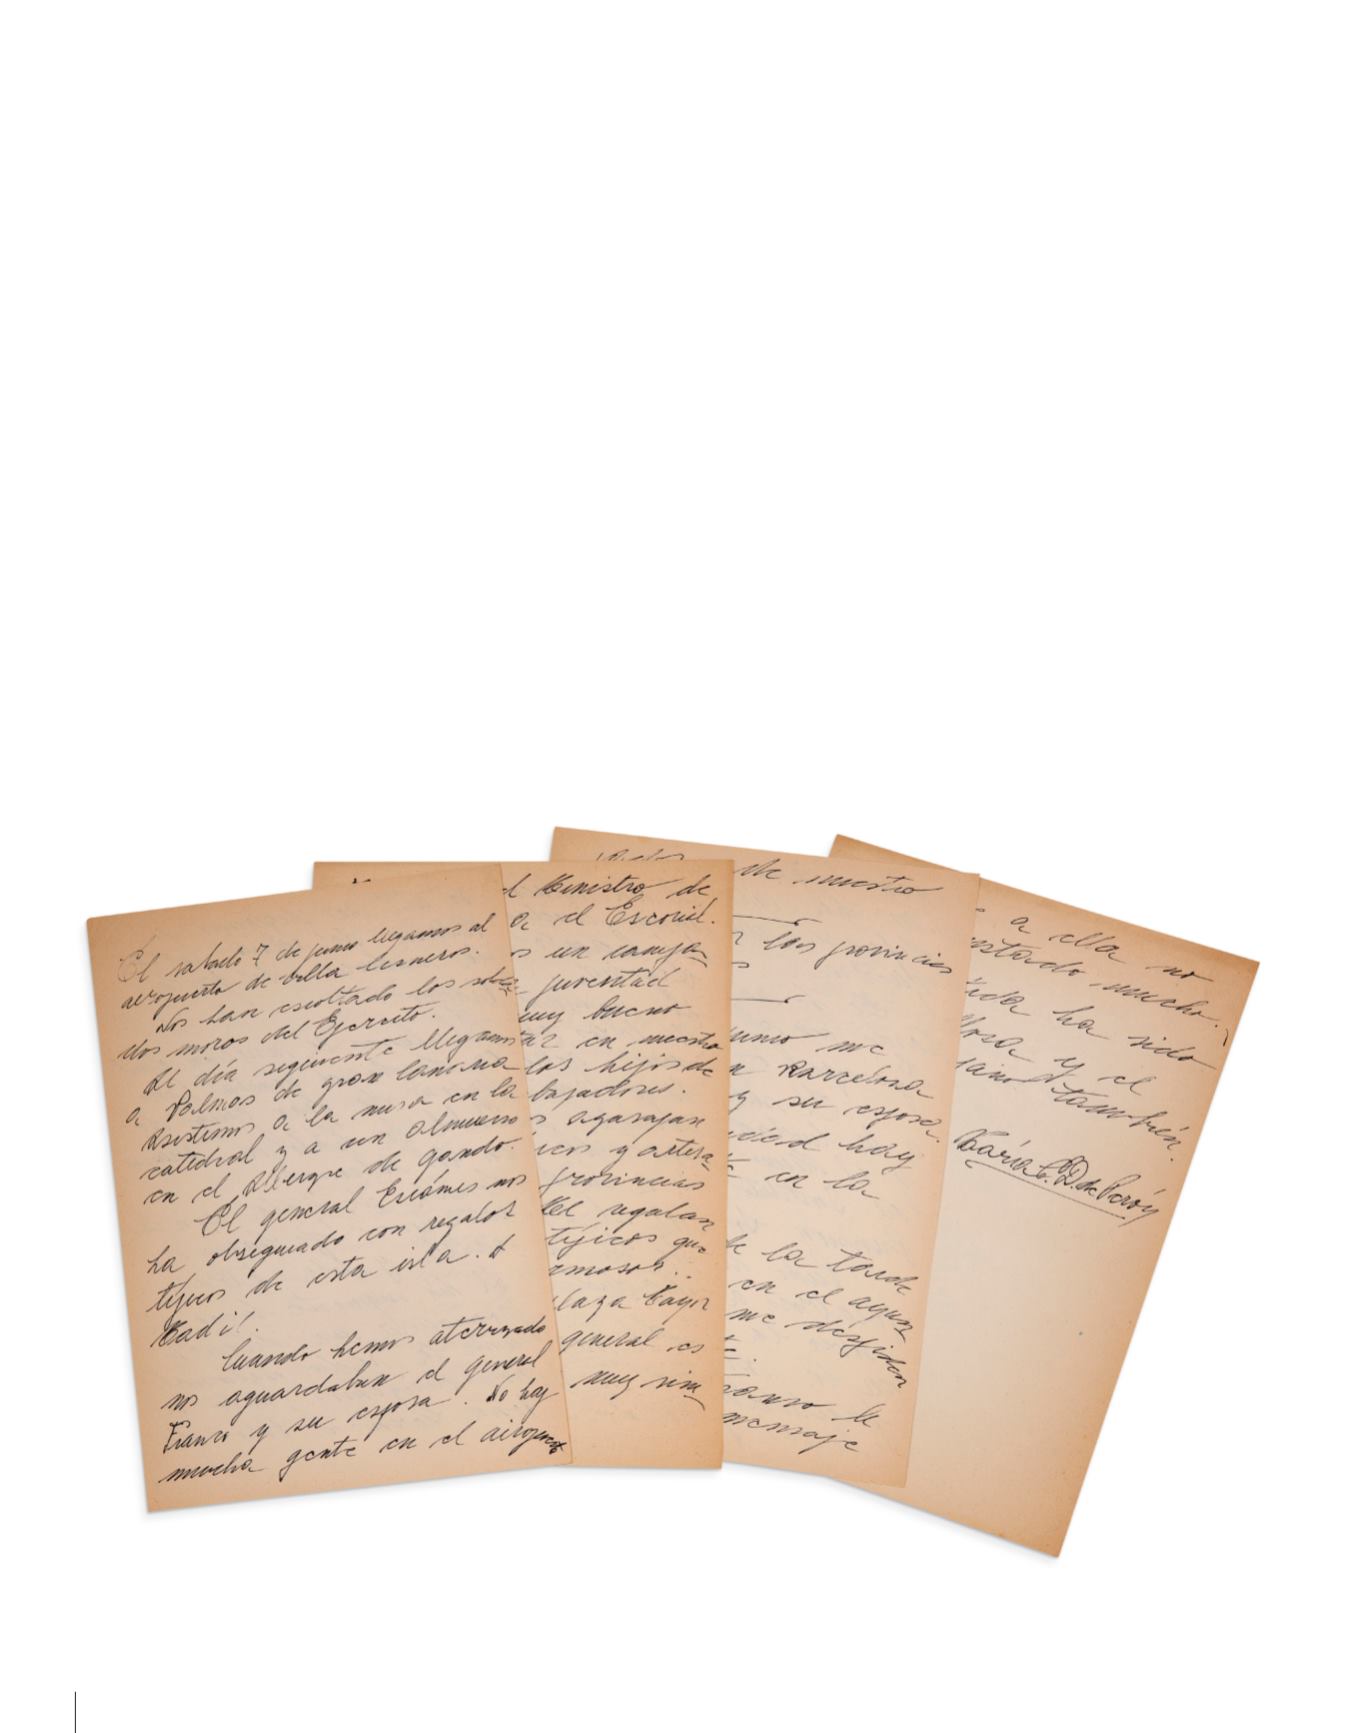 El sabado 7 de junio llegamos al
aeropuerto de Villa Cisneros.
Nos han escoltado los solda
dos moros del Ejercito.
Al día seguiente llegamos
a Palmas de gran Canaria
Asistimos a la misa en la
catedral y a un almuerzo
en el Albergue de Gando.
El general Escámes nos
ha obsequiado con regalos
típicos de esta isla. A
Madi!.
Cuando hemos aterrizado
nos aguardaban el general
Franco y su esposa. No hay
mucha gente en el airopuert
Ministro de
a el Escorial.
un campa
juventud
muy bueno
en nuestra
los hijos de
bajadores.
agasajan
y artesa
provincias
Me regalan
típicos que
ermosos.
plaza Mayor
general es
muy sim
de nuestro
las provincias
me
Barcelona
y su esposa.
hay
en la
de la tarde
en el ayun
me despiden
le
mensaje
a ella no
mucho.
ha sido
y el
también.
María E. D. de Perón